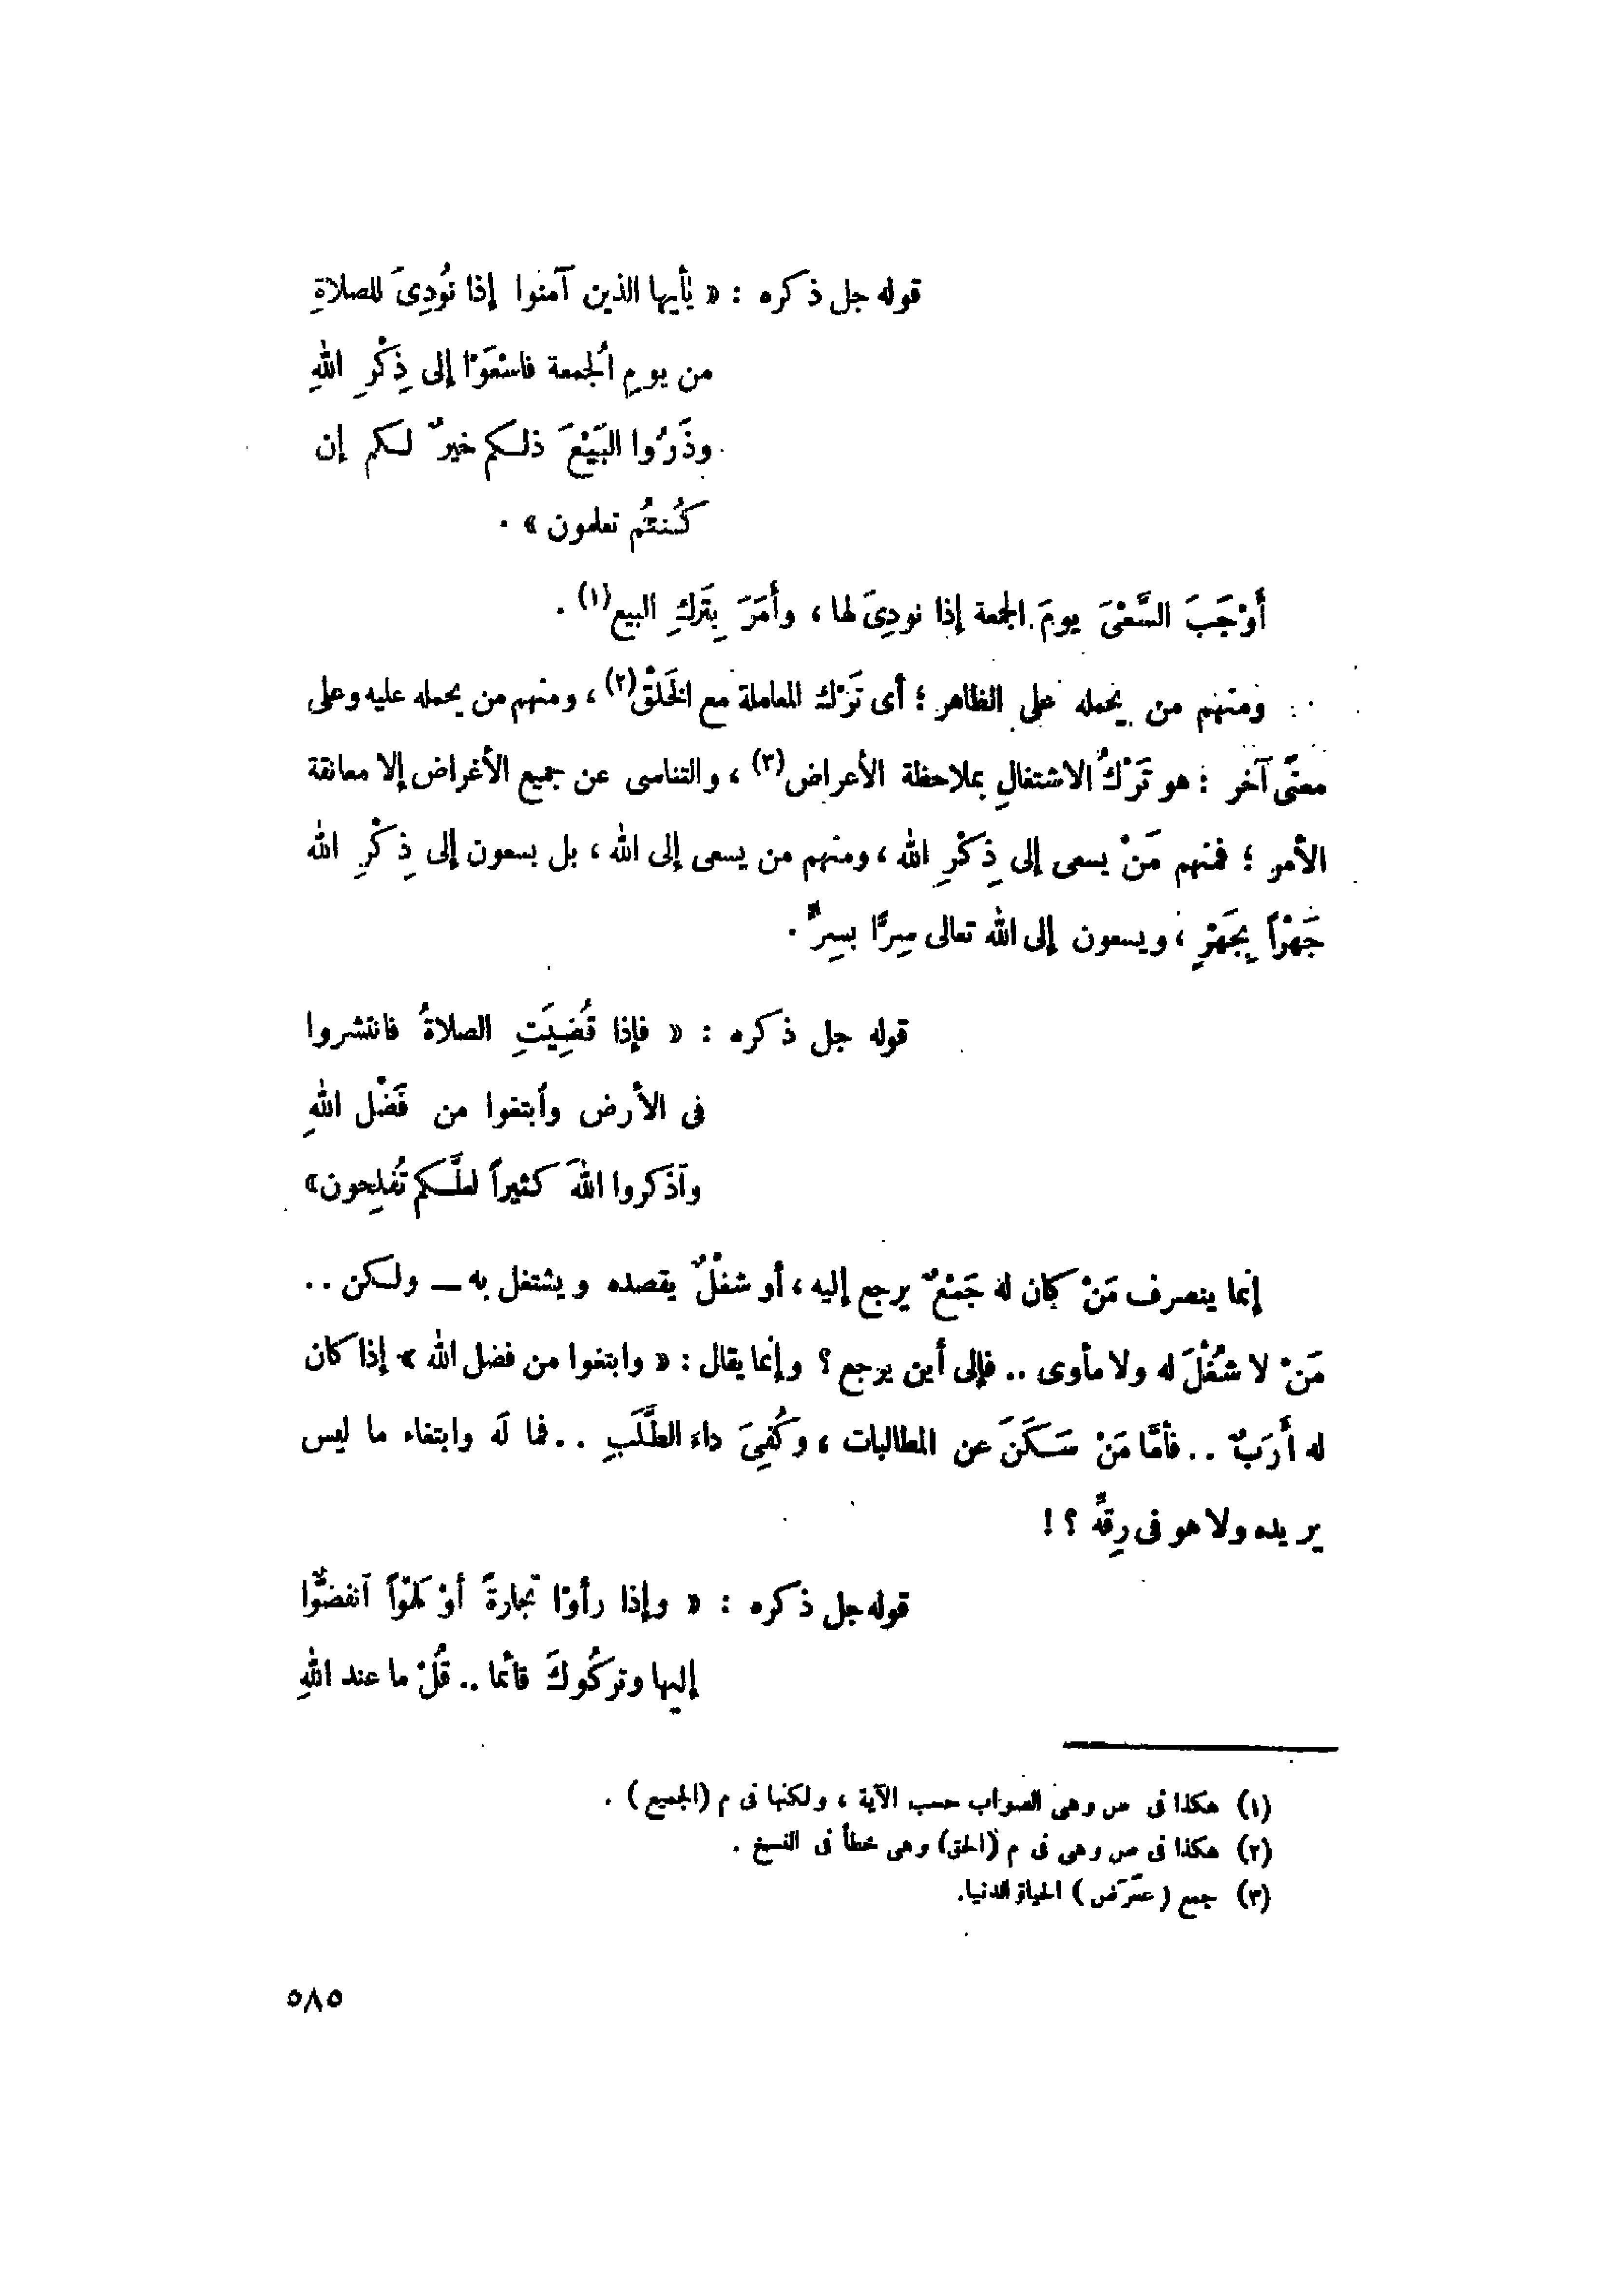 قوله جل ذكره : « يٰأيها الذين آمنوا إذا نُودِىَ للصلاةِ
من يومِ الجمعة فاسْعَوْا إلى ذِكْرِ اللهِ
وذَرُوا البَيْعَ ذلكم خيرٌ لكم إن
كُنتُم تعلمون » .
أَوْجَبَ السَّعْىَ يومَ الجمعة إذا نودِىَ لها ، وأَمَرَ بِتَرْكِ البيع(١) .
ومنهم من يحمله على الظاهر ؛ أى تَرْك المعاملة مع الخَلْق(٢) ، ومنهم من يحمله عليه وعلى
معنًى آخر : هو تَرْكُ الاشتغالِ بملاحظة الأعراض(٣) ، والتناسى عن جميع الأغراض إلا معانقة
الأمر ؛ فمنهم مَنْ يسعى إلى ذِكْرِ الله ، ومنهم من يسعى إلى الله ، بل يسعون إلى ذِكْرِ الله
جَهْراً بِجَهْرٍ ، ويسعون إلى الله تعالى سِرًّا بسِرٍّ .
قوله جل ذكره : « فإذا قُضِيَتِ الصلاةُ فانتشروا
فى الأرض وابتغوا من فَضْل اللهِ
واذكروا اللهَ كثيراً لعلَّكم تُفلِحون»
إنما ينصرف مَنْ كان له جَمْعٌ يرجع إليه ، أو شغْلٌ يقصده ويشتغل به – ولكن ..
مَنْ لا شُغْلَ له ولا مأوى .. فإلى أين يرجع ؟ وإنما يقال : « وابتغوا من فضل الله » إذا كان
له أَرَبٌ .. فأمَّا مَنْ سَكَنَ عن المطالبات ، وكُفِىَ داءَ الطَّلَبِ .. فما لَه وابتغاء ما ليس
يريده ولا هو فى رِقِّه ؟!
قوله جل ذكره : « وإذا رأوْا تجارةً أوْ لهْواً انفضُّوا
إليها وتركُوكَ قائما .. قُلْ ما عند اللهِ
(١) هكذا فى ص وهى الصواب حسب الآية ، ولكنها فى م (الجميع) .
(٢) هكذا فى ص وهى فى م (الحق) وهى خطأ فى النسخ .
(٣) جمع (عَرَض) الحياة الدنيا.
٥٨٥